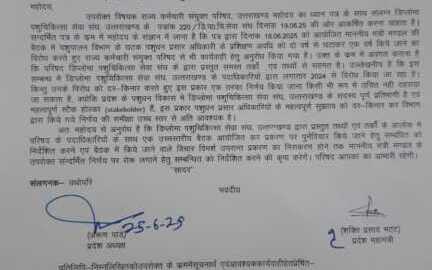 महोदय,
उपरोक्त विषयक राज्य कर्मचारी संयुक्त परिषद, उत्तराखण्ड महोदय का ध्यान पत्र के साथ संलग्न डिप्लोमा
पशुचिकित्सा सेवा संघ, उत्तराखण्ड के पत्रांक 220 / दिनांक 19.06.25 की ओर आकर्षित करना चाहता है।
सन्दर्भित पत्र के क्रम में महोदय के संज्ञान में लाना है कि पत्र द्वारा दिनांक 18.06.2025 को आयोजित माननीय मंत्री मण्डल की
बैठक में पशुपालन विभाग के घटक पशुधन प्रसार अधिकारी के प्रशिक्षण अवधि को दो वर्ष से घटाकर एक वर्ष किये जाने का
विरोध करते हुए राज्य कर्मचारी संयुक्त परिषद से भी कार्यवाही हेतु अनुरोध किया गया है। उक्त के क्रम में अवगत कराना है
कि परिषद डिप्लोमा पशुचिकित्सा सेवा संघ के द्वारा प्रस्तुत समस्त तर्कों एवं तथ्यों से सहमत है। उल्लेखनीय है कि इस
सम्बन्ध में डिप्लोमा पशुचिकित्सा सेवा संघ, उत्तराखण्ड के पदाधिकारियों द्वारा लगातार 2024 से विरोध किया जा रहा है।
किन्तु उनके विरोध को दर-किनार करते हुए इस प्रकार एक तरफा निर्णय किया जाना किसी भी रूप में उचित नहीं ठहराया
जा सकता है, क्योंकि प्रदेश के पशुधन विकास में डिप्लोमा पशुचिकित्सा सेवा संघ, उत्तराखण्ड के सदस्य पूर्ण प्रतिभागी है एवं
महत्वपूर्ण स्टेक होल्डर (stakeholder) हैं, इस प्रकार पशुधन प्रसार अधिकारियों के महत्वपूर्ण सुझाव को दर-किनार कर विभाग
द्वारा किये गये निर्णय की समीक्षा उच्च स्तर से अति आवश्यक है।
अतः महोदय से अनुरोध है कि डिप्लोमा पशुचिकित्सा सेवा संघ, उत्तराखण्ड द्वारा प्रस्तुत तथ्यों एवं तर्कों के आलोक में
परिषद के पदाधिकारियों के साथ एक उच्चस्तरीय बैठक आयोजित कर प्रकरण पर पुनर्विचार किये जाने हेतु सम्बन्धित को
निर्देशित करने एवं बैठक में किये जाने वाले विचार विमर्श उपरान्त प्रकरण का निराकरण होने तक माननीय मंत्री मण्डल के
उपरोक्त सन्दर्भित निर्णय पर रोक लगाने हेतु सम्बन्धित को निर्देशित करने की कृपा करेंगे। परिषद आपका का आभारी रहेगी।
"सादर"
संलग्नक– यथोपरि
भवदीय
25-6-25
(अरूण पांडे)
प्रदेश अध्यक्ष
(शक्ति प्रसाद भट्ट)
प्रदेश महामंत्री